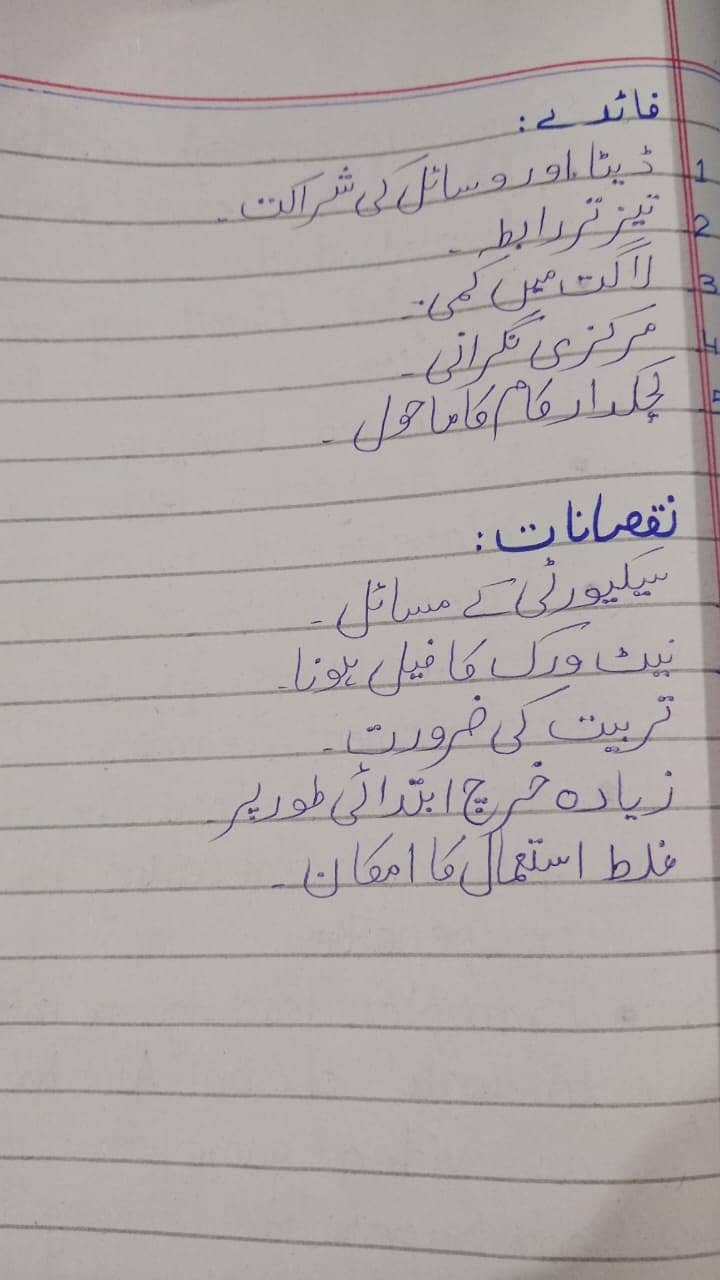 فائدے:
1 ڈیٹا اور وسائل کی شراکت۔
2 تیز تر رابطہ۔
3 لاگت میں کمی۔
4 مرکزی نگرانی۔
5 لچکدار کام کا ماحول۔
نقصانات:
سیکیورٹی کے مسائل۔
نیٹ ورک کا فیل ہونا۔
تربیت کی ضرورت۔
زیادہ خرچ ابتدائی طور پر۔
غلط استعمال کا امکان۔